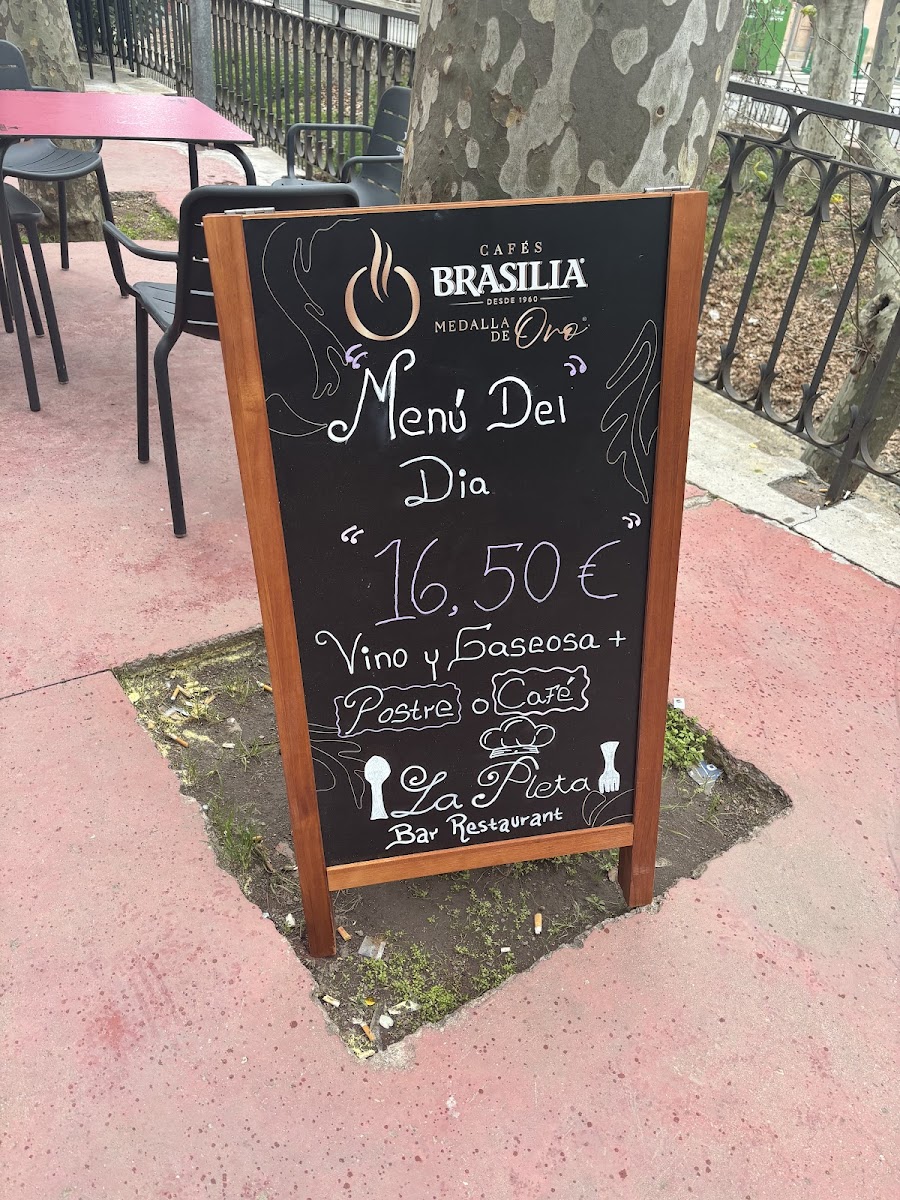 CAFÉS
BRASILIA®
DESDE 1960
MEDALLA
DE Oro®
"Menú Del"
Dia
"16,50 €"
Vino y Gaseosa +
Postre o Café
La Pleta
Bar Restaurant